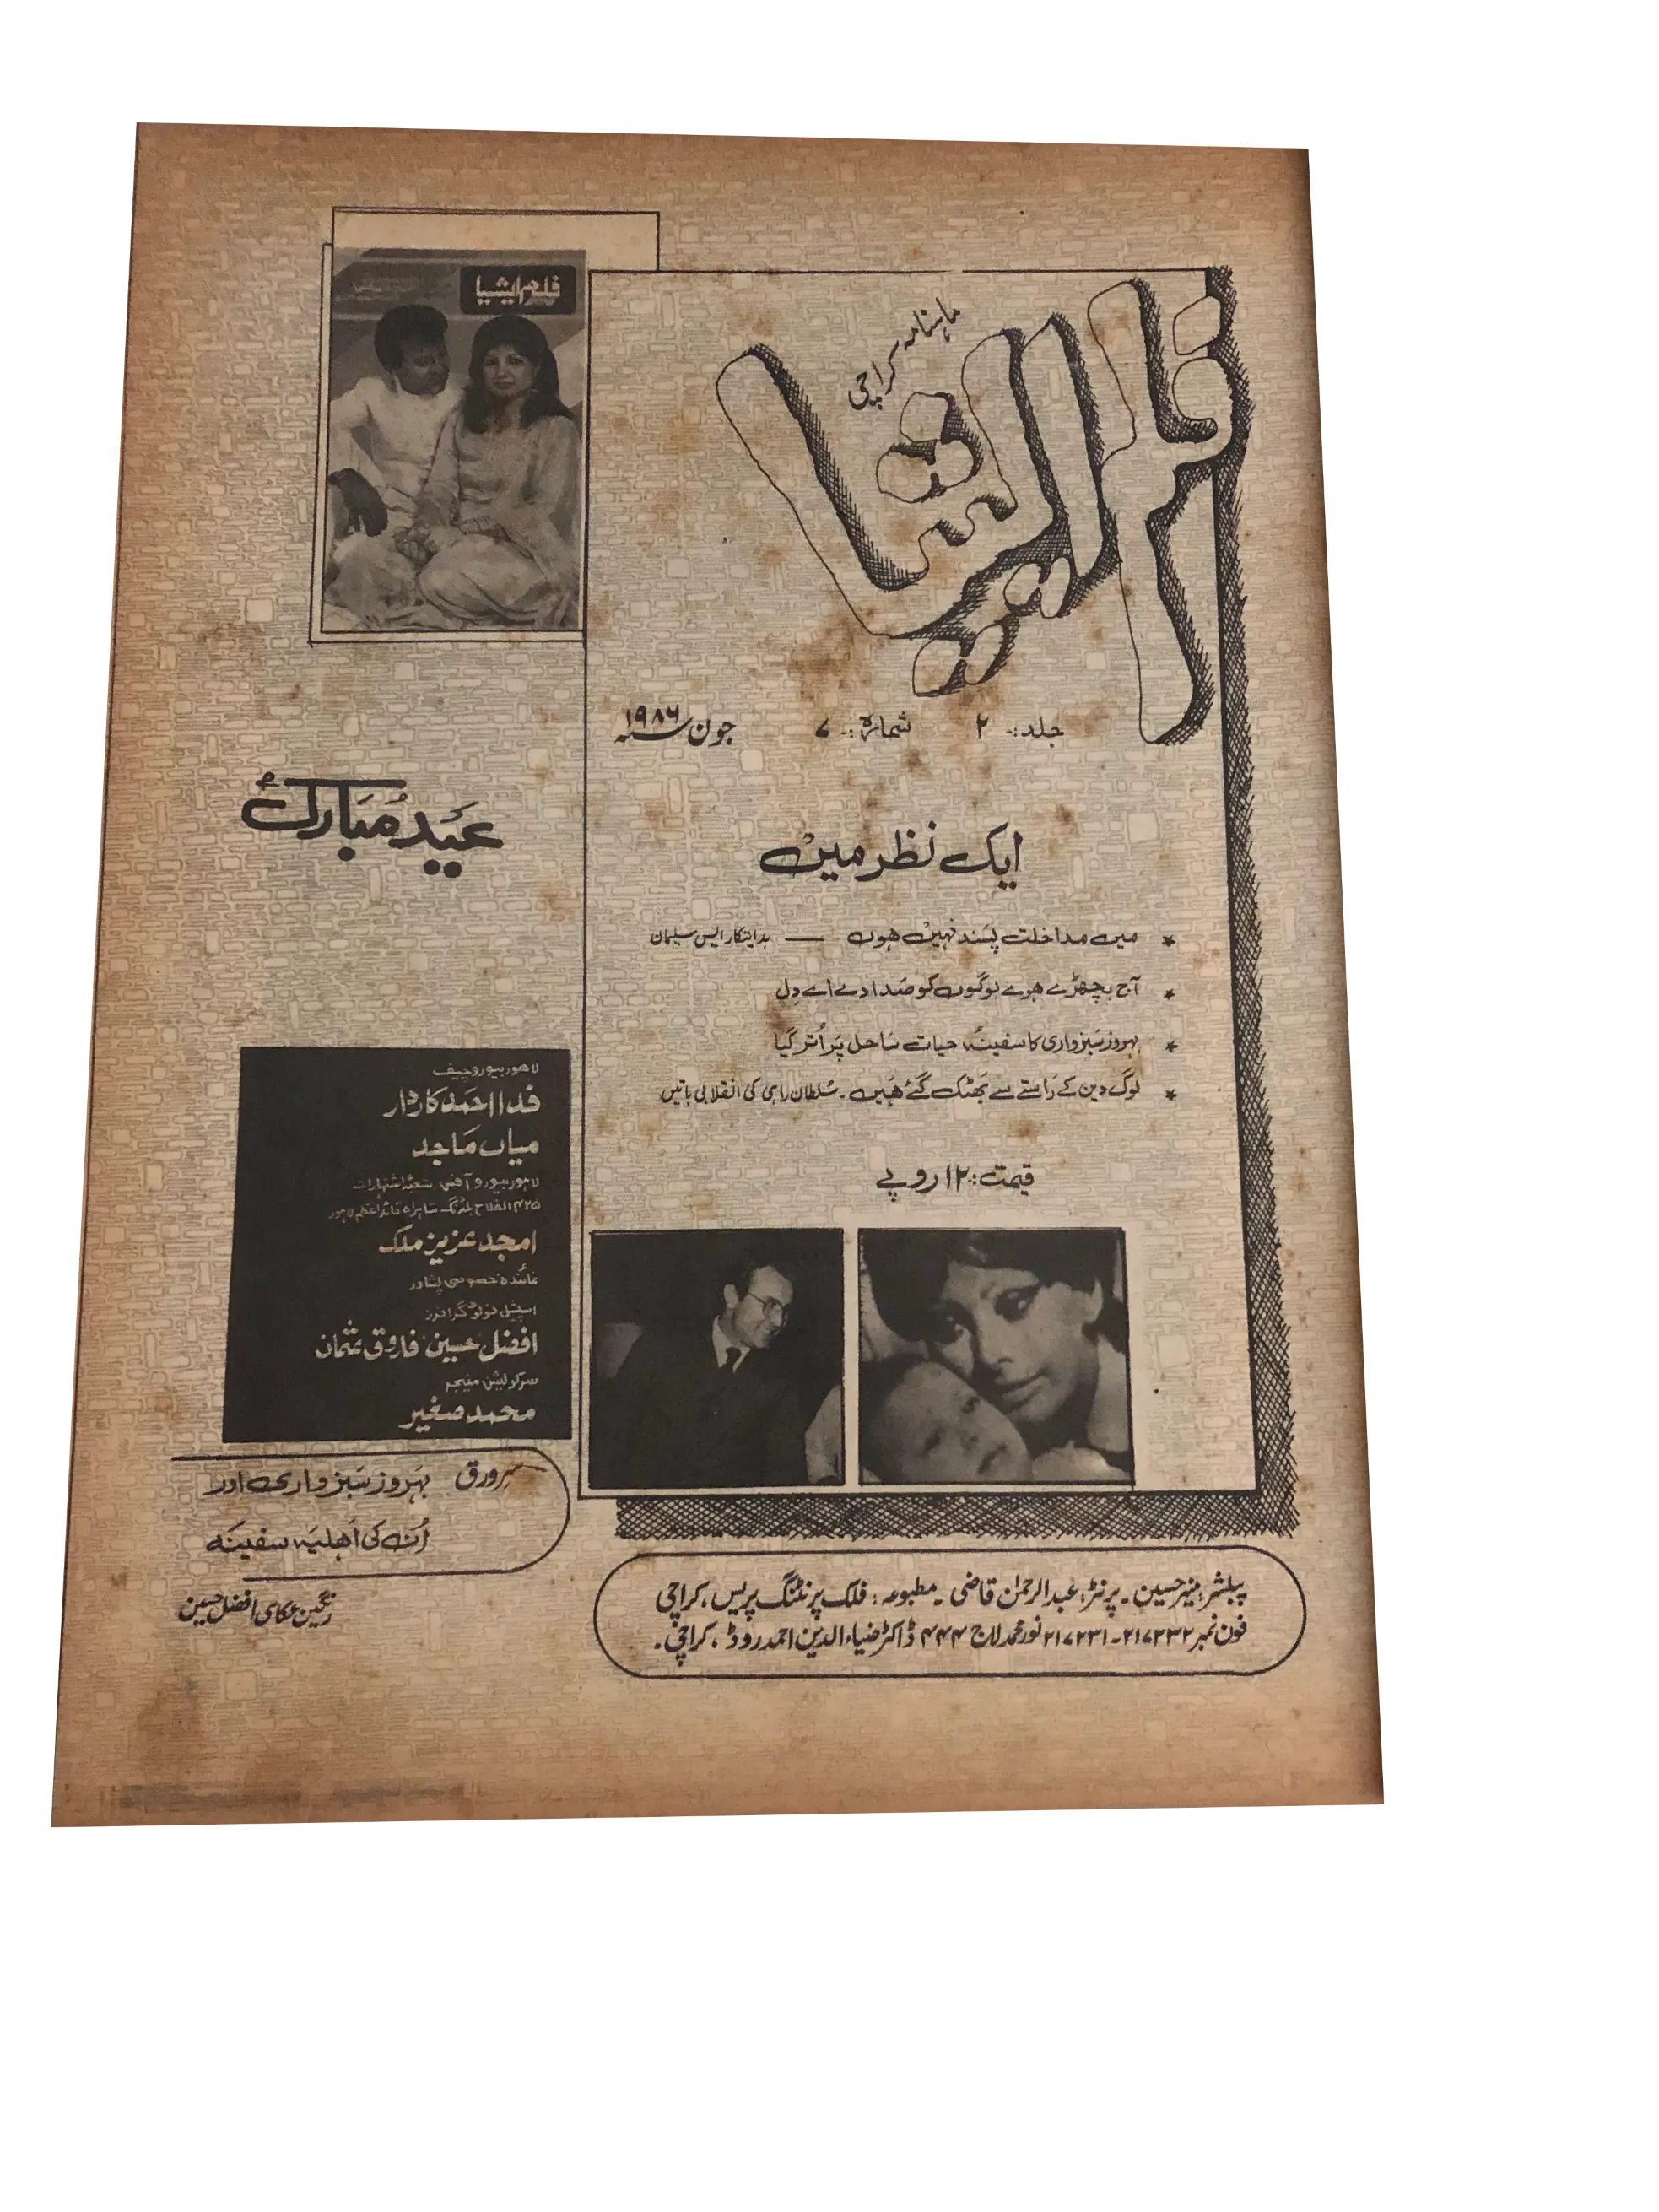 ماہنامہ کراچی
فلم ایشیا
جلد:- ۲ شمارہ:- ۷ جون ۱۹۸۶ء
ایک نظر میں
* میں مداخلت پسند نہیں ہوں — ہدایتکار ایس سلیمان
* آج بچھڑے ہوے لوگوں کو صدا دے اے دل
* بہروز سبزواری کا سفینۂ حیات ساحل پر اُتر گیا
* لوگ دین کے راستے سے بھٹک گئے ہیں ۔ سُلطان راہی کی انقلابی باتیں
قیمت:- ۱۲ روپے
پبلشر: منیر حسین ۔ پرنٹر: عبدالرحمٰن قاضی ۔ مطبوعہ: فلک پرنٹنگ پریس، کراچی
فون نمبر ۲۱۷۲۳۲-۲۱۷۲۳۱ نور محمد لاج ۴۴۴ ڈاکٹر ضیاء الدین احمد روڈ، کراچی۔
فلم ایشیا
عید مُبارک
لاہور بیورو چیف
فدا احمد کاردار
میاں ماجد
لاہور بیورو آفس شعبۂ اشتہارات
۴۲۵ الفلاح بلڈنگ شاہراہ قائد اعظم لاہور
امجد عزیز ملک
نمائندہ خصوصی پشاور
اسپیشل فوٹو گرافرز
افضل حسین فاروق عثمان
سرکولیشن منیجر
محمد صغیر
سرورق بہروز سبزواری اور
اُن کی اہلیہ سفینہ
رنگین عکاسی افضل حسین